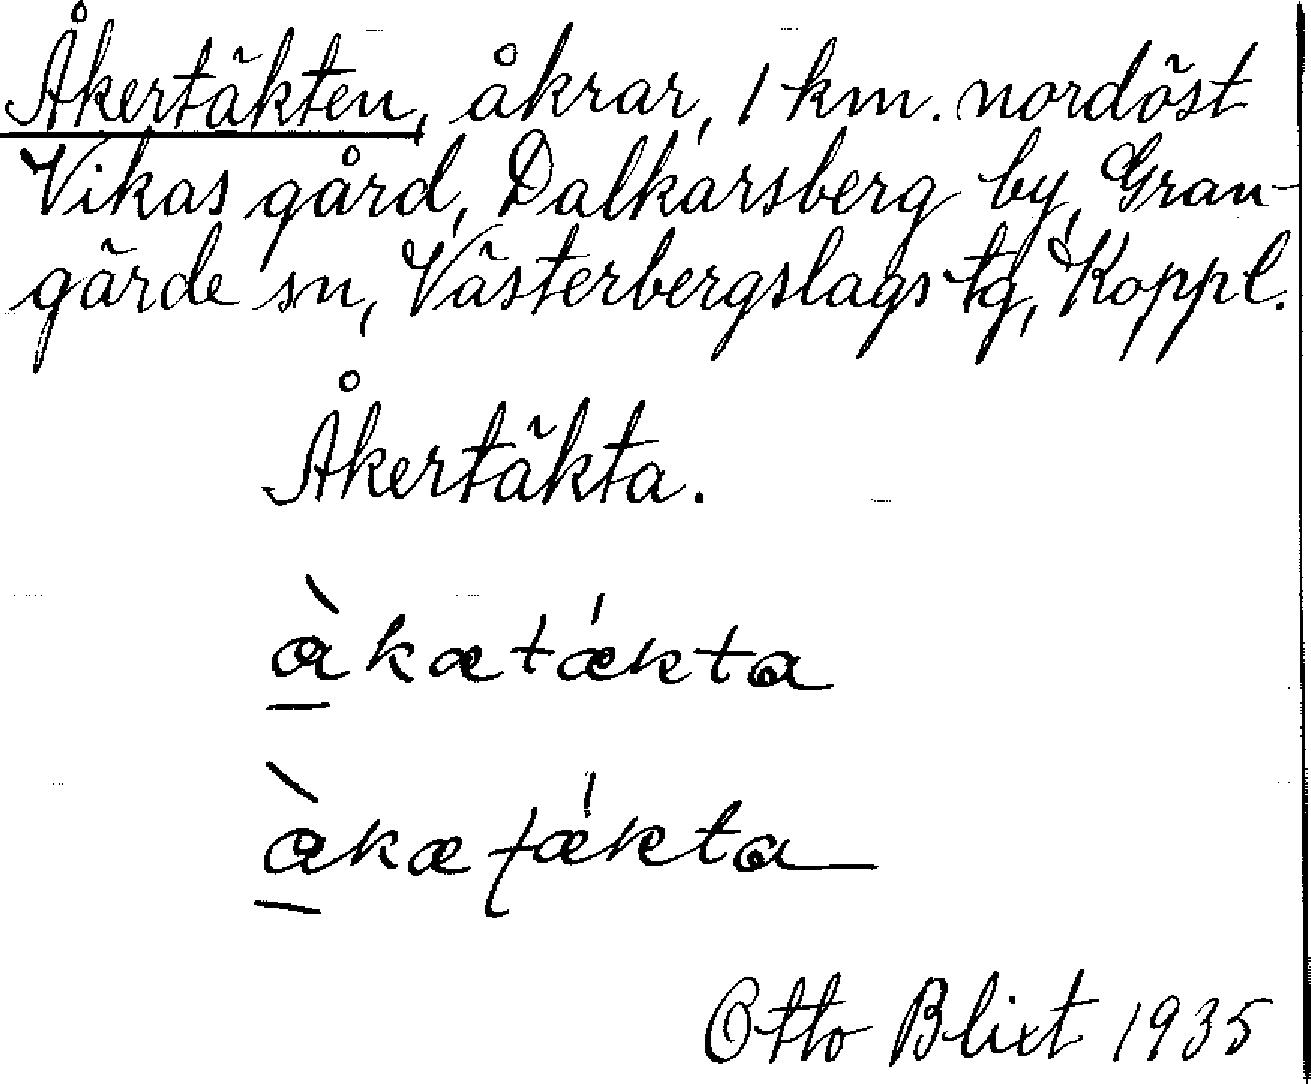 Åkertäkten, åkrar, 1 km. nordöst
Vikas gård, Dalkarsberg by, Gran-
gärde sn, Västerbergslags tg, Koppl.
Åkertäkta.
àkætǽkta
àkæƫǽkta
Otto Blixt 1935